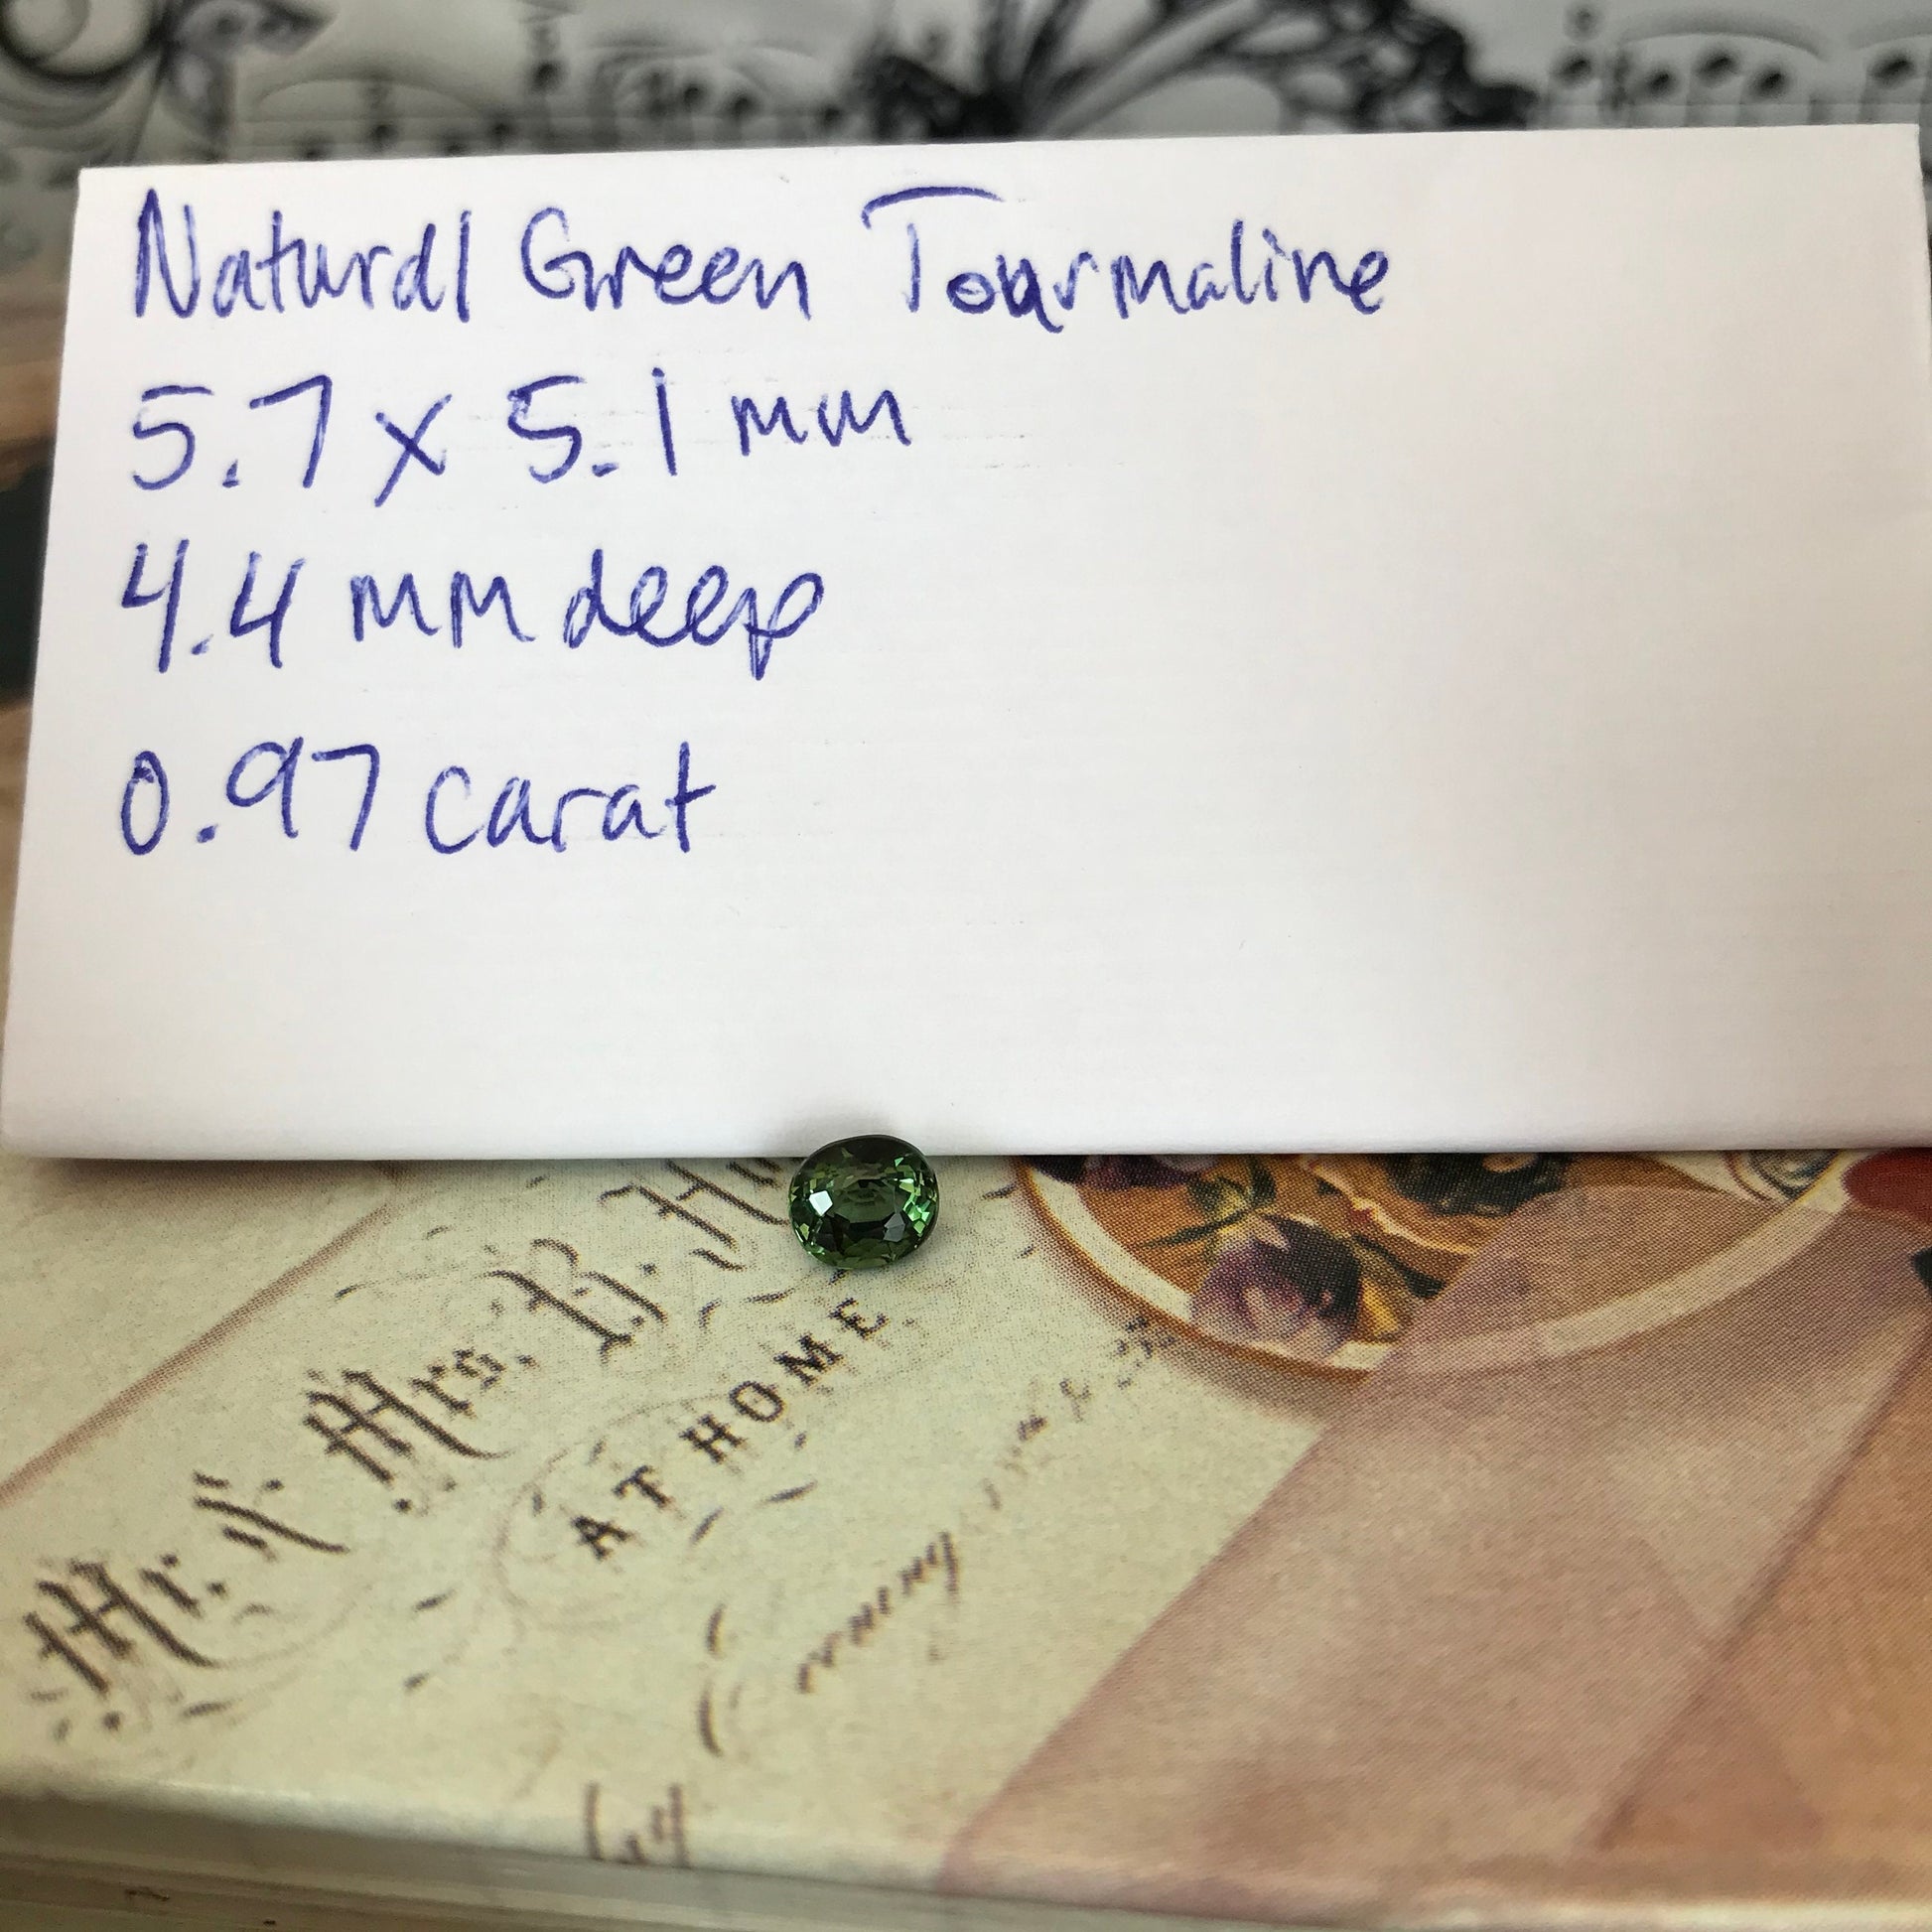 Natural Green Tourmaline
5.7 x 5.1 mm
4.4 mm deep
0.97 carat
Mr. & Mrs. B.
AT HOME
Evening